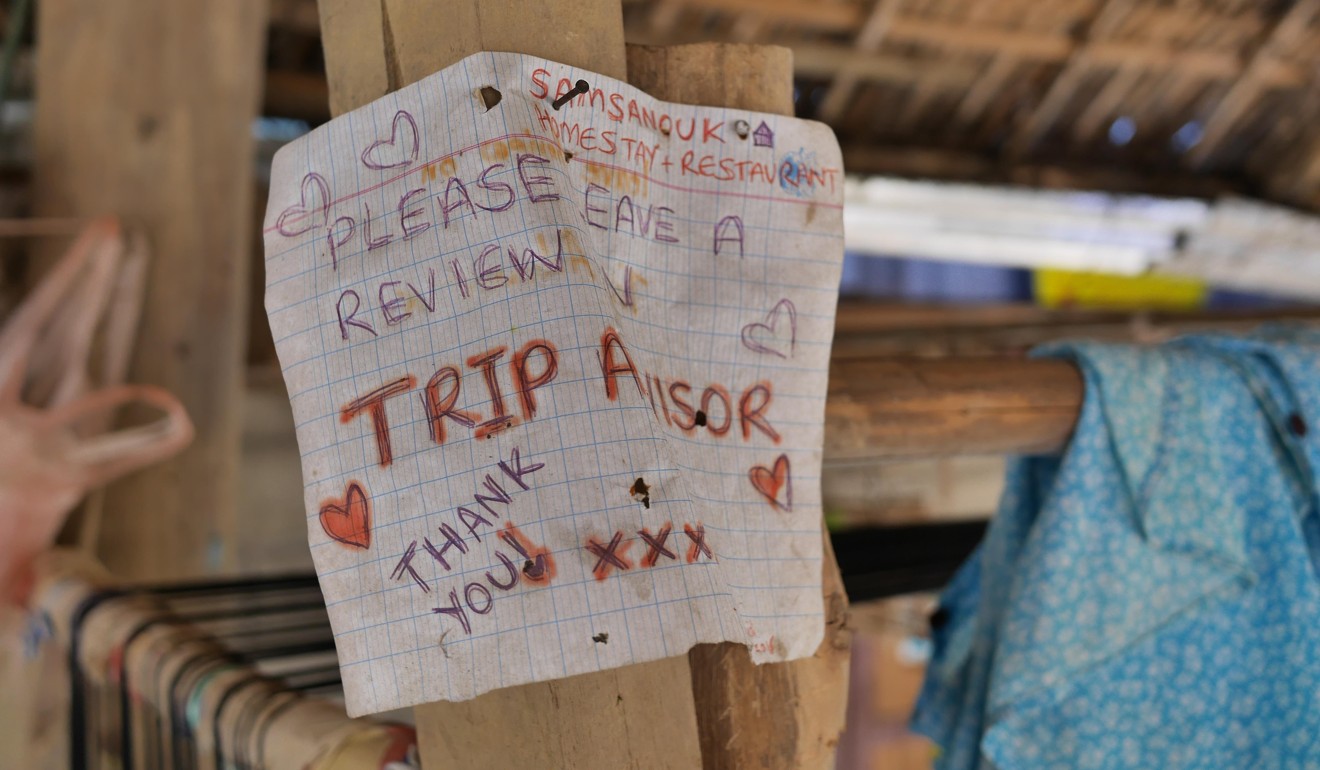 SAMSANOUK
HOMESTAY + RESTAURANT
PLEASE EAVE A
REVIEW
TRIP A VISOR
THANK
YOU! XXX